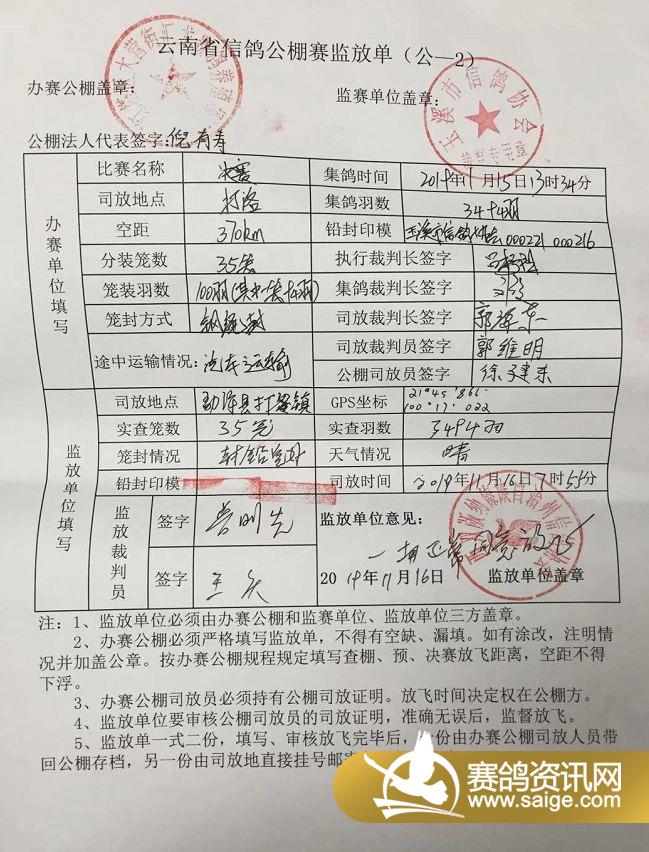 云南省信鸽公棚赛监放单（公—2）
办赛公棚盖章：
监赛单位盖章：
玉溪市信鸽协会
公棚法人代表签字：倪有寿
办赛单位填写
比赛名称 决赛 集鸽时间 2019年11月15日13时34分
司放地点 打洛 集鸽羽数 3494羽
空距 370km 铅封印模 000221 000216
分装笼数 35笼 执行裁判长签字
笼装羽数 100羽 集鸽裁判长签字
笼封方式 钢绳封 司放裁判长签字 郭泽东
途中运输情况：汽车运输 司放裁判员签字 郭维明
公棚司放员签字 徐建东
监放单位填写
司放地点 勐海县打洛镇 GPS坐标 21°45′866 100°17′022
实查笼数 35笼 实查羽数 3494羽
笼封情况 封铅完好 天气情况 晴
铅封印模 司放时间 2019年11月16日7时55分
监放裁判员 签字 签字
监放单位意见：
一切正常同意放飞
2019年11月16日 监放单位盖章
注：1、监放单位必须由办赛公棚和监赛单位、监放单位三方盖章。
2、办赛公棚必须严格填写监放单，不得有空缺、漏填。如有涂改，注明情
况并加盖公章。按办赛公棚规程规定填写查棚、预、决赛放飞距离，空距不得
下浮。
3、办赛公棚司放员必须持有公棚司放证明。放飞时间决定权在公棚方。
4、监放单位要审核公棚司放员的司放证明，准确无误后，监督放飞。
5、监放单一式二份，填写、审核放飞完毕后，一份由办赛公棚司放人员带
回公棚存档，另一份由司放地直接挂号邮寄
赛鸽资讯网
www.saige.com